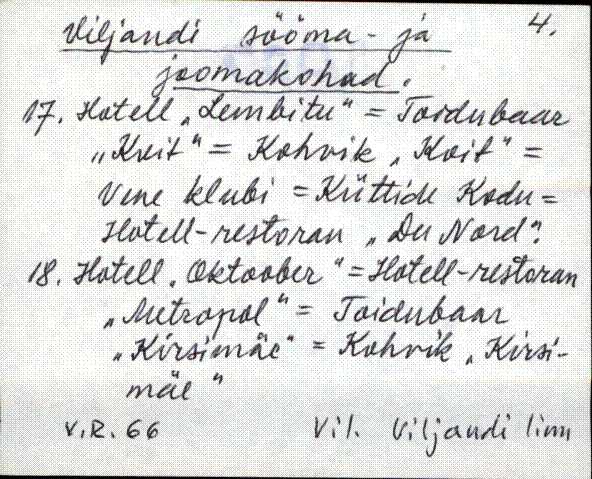 4.
Viljandi sööma- ja
joomakohad.
17. Hotell „Lembitu" = Toidubaar
„Koit" = Kohvik „Koit" =
Vene klubi = Küttide Kodu =
Hotell-restoran „Du Nord".
18. Hotell „Oktoober" = Hotell-restoran
„Metropol" = Toidubaar
„Kirsimäe" = Kohvik „Kirsi-
mäe"
V.R. 66 Vil. Viljandi linn